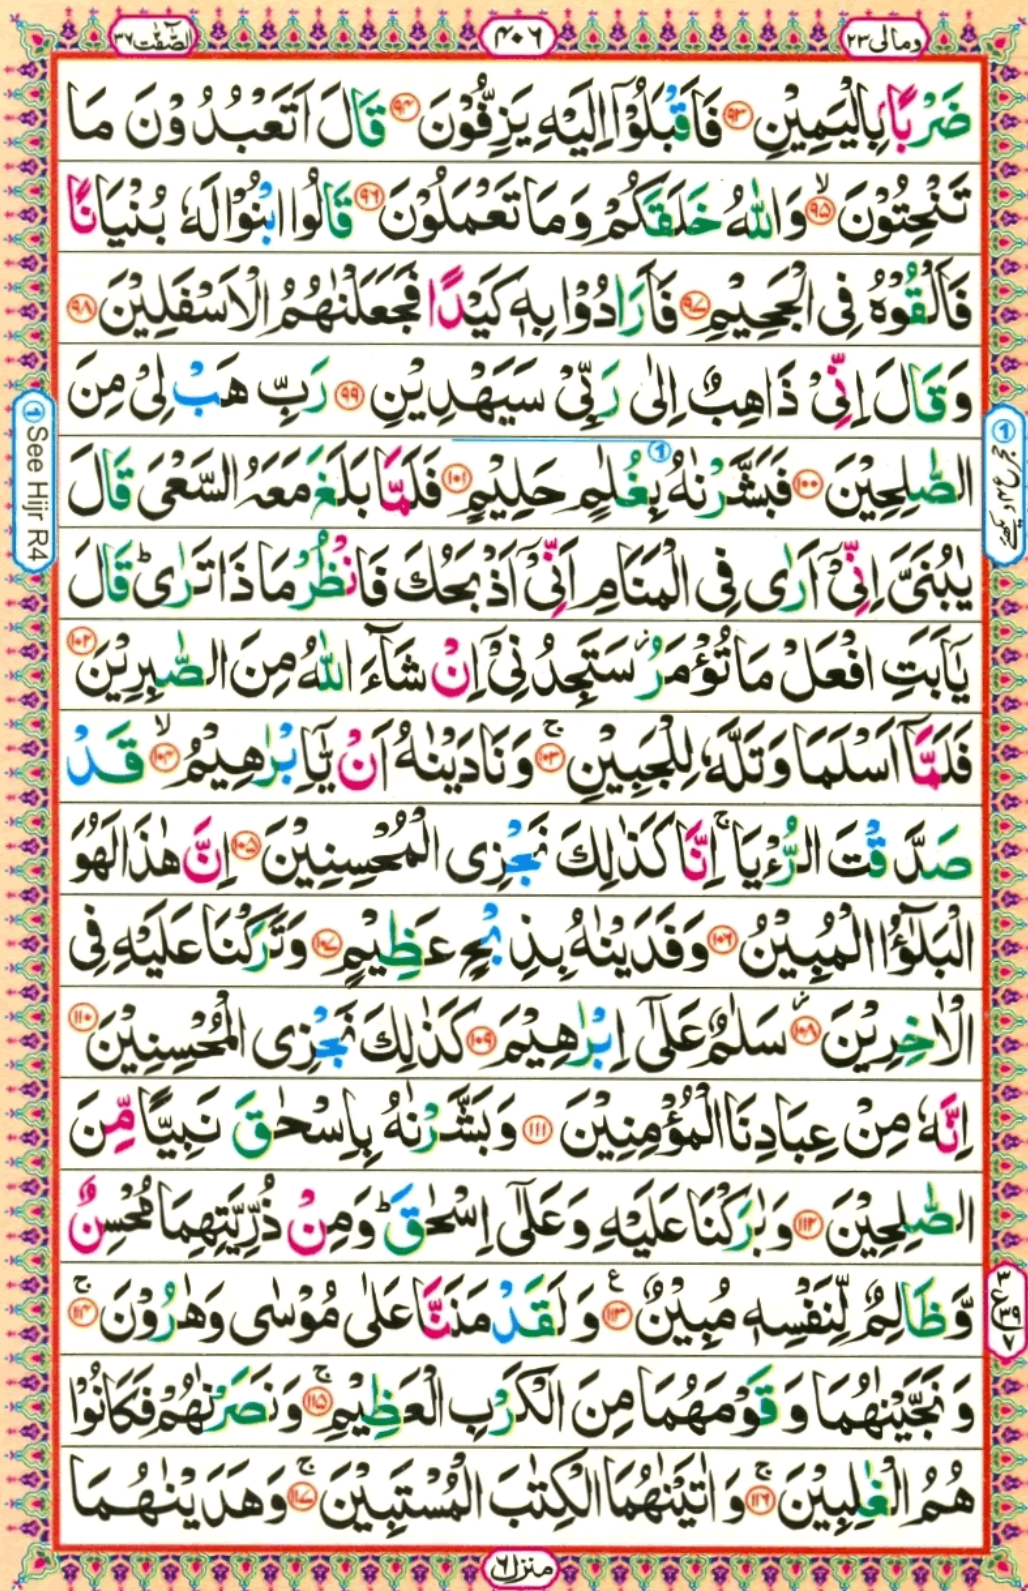 وما لی ۲۳
۴۰۶
الصّٰفّٰت ۳۷
ضَرْبًۢا بِالْيَمِيْنِ ۹۳ فَاَقْبَلُوْۤا اِلَيْهِ يَزِفُّوْنَ ۹۴ قَالَ اَتَعْبُدُوْنَ مَا
تَنْحِتُوْنَ ۙ ۹۵ وَاللّٰهُ خَلَقَكُمْ وَمَا تَعْمَلُوْنَ ۹۶ قَالُوا ابْنُوْا لَهٗ بُنْيَانًا
فَاَلْقُوْهُ فِى الْجَحِيْمِ ۹۷ فَاَرَادُوْا بِهٖ كَيْدًا فَجَعَلْنٰهُمُ الْاَسْفَلِيْنَ ۹۸
وَقَالَ اِنِّىْ ذَاهِبٌ اِلٰى رَبِّىْ سَيَهْدِيْنِ ۹۹ رَبِّ هَبْ لِىْ مِنَ
الصّٰلِحِيْنَ ۱۰۰ فَبَشَّرْنٰهُ بِغُلٰمٍ حَلِيْمٍ ۱۰۱ فَلَمَّا بَلَغَ مَعَهُ السَّعْىَ قَالَ
يٰبُنَىَّ اِنِّىْۤ اَرٰى فِى الْمَنَامِ اَنِّىْۤ اَذْبَحُكَ فَانْظُرْ مَاذَا تَرٰى ؕ قَالَ
يٰۤاَبَتِ افْعَلْ مَا تُؤْمَرُ ؗ سَتَجِدُنِىْۤ اِنْ شَآءَ اللّٰهُ مِنَ الصّٰبِرِيْنَ ۱۰۲
فَلَمَّاۤ اَسْلَمَا وَتَلَّهٗ لِلْجَبِيْنِ ۚ ۱۰۳ وَنَادَيْنٰهُ اَنْ يّٰۤاِبْرٰهِيْمُ ۙ ۱۰۴ قَدْ
صَدَّقْتَ الرُّءْيَا ۚ اِنَّا كَذٰلِكَ نَجْزِى الْمُحْسِنِيْنَ ۱۰۵ اِنَّ هٰذَا لَهُوَ
الْبَلٰٓؤُا الْمُبِيْنُ ۱۰۶ وَفَدَيْنٰهُ بِذِبْحٍ عَظِيْمٍ ۱۰۷ وَتَرَكْنَا عَلَيْهِ فِى
الْاٰخِرِيْنَ ؗ ۱۰۸ سَلٰمٌ عَلٰٓى اِبْرٰهِيْمَ ۱۰۹ كَذٰلِكَ نَجْزِى الْمُحْسِنِيْنَ ۱۱۰
اِنَّهٗ مِنْ عِبَادِنَا الْمُؤْمِنِيْنَ ۱۱۱ وَبَشَّرْنٰهُ بِاِسْحٰقَ نَبِيًّا مِّنَ
الصّٰلِحِيْنَ ۱۱۲ وَبٰرَكْنَا عَلَيْهِ وَعَلٰٓى اِسْحٰقَ ؕ وَمِنْ ذُرِّيَّتِهِمَا مُحْسِنٌ
وَّظَالِمٌ لِّنَفْسِهٖ مُبِيْنٌ ۱۱۳ ع وَلَقَدْ مَنَنَّا عَلٰى مُوْسٰى وَهٰرُوْنَ ۚ ۱۱۴
وَنَجَّيْنٰهُمَا وَقَوْمَهُمَا مِنَ الْكَرْبِ الْعَظِيْمِ ۚ ۱۱۵ وَنَصَرْنٰهُمْ فَكَانُوْا
هُمُ الْغٰلِبِيْنَ ۚ ۱۱۶ وَاٰتَيْنٰهُمَا الْكِتٰبَ الْمُسْتَبِيْنَ ۚ ۱۱۷ وَهَدَيْنٰهُمَا
① See Hijr R4
① حجر ع ۴ دیکھئے
۳ ع ۳۹ ۷
منزل ۶